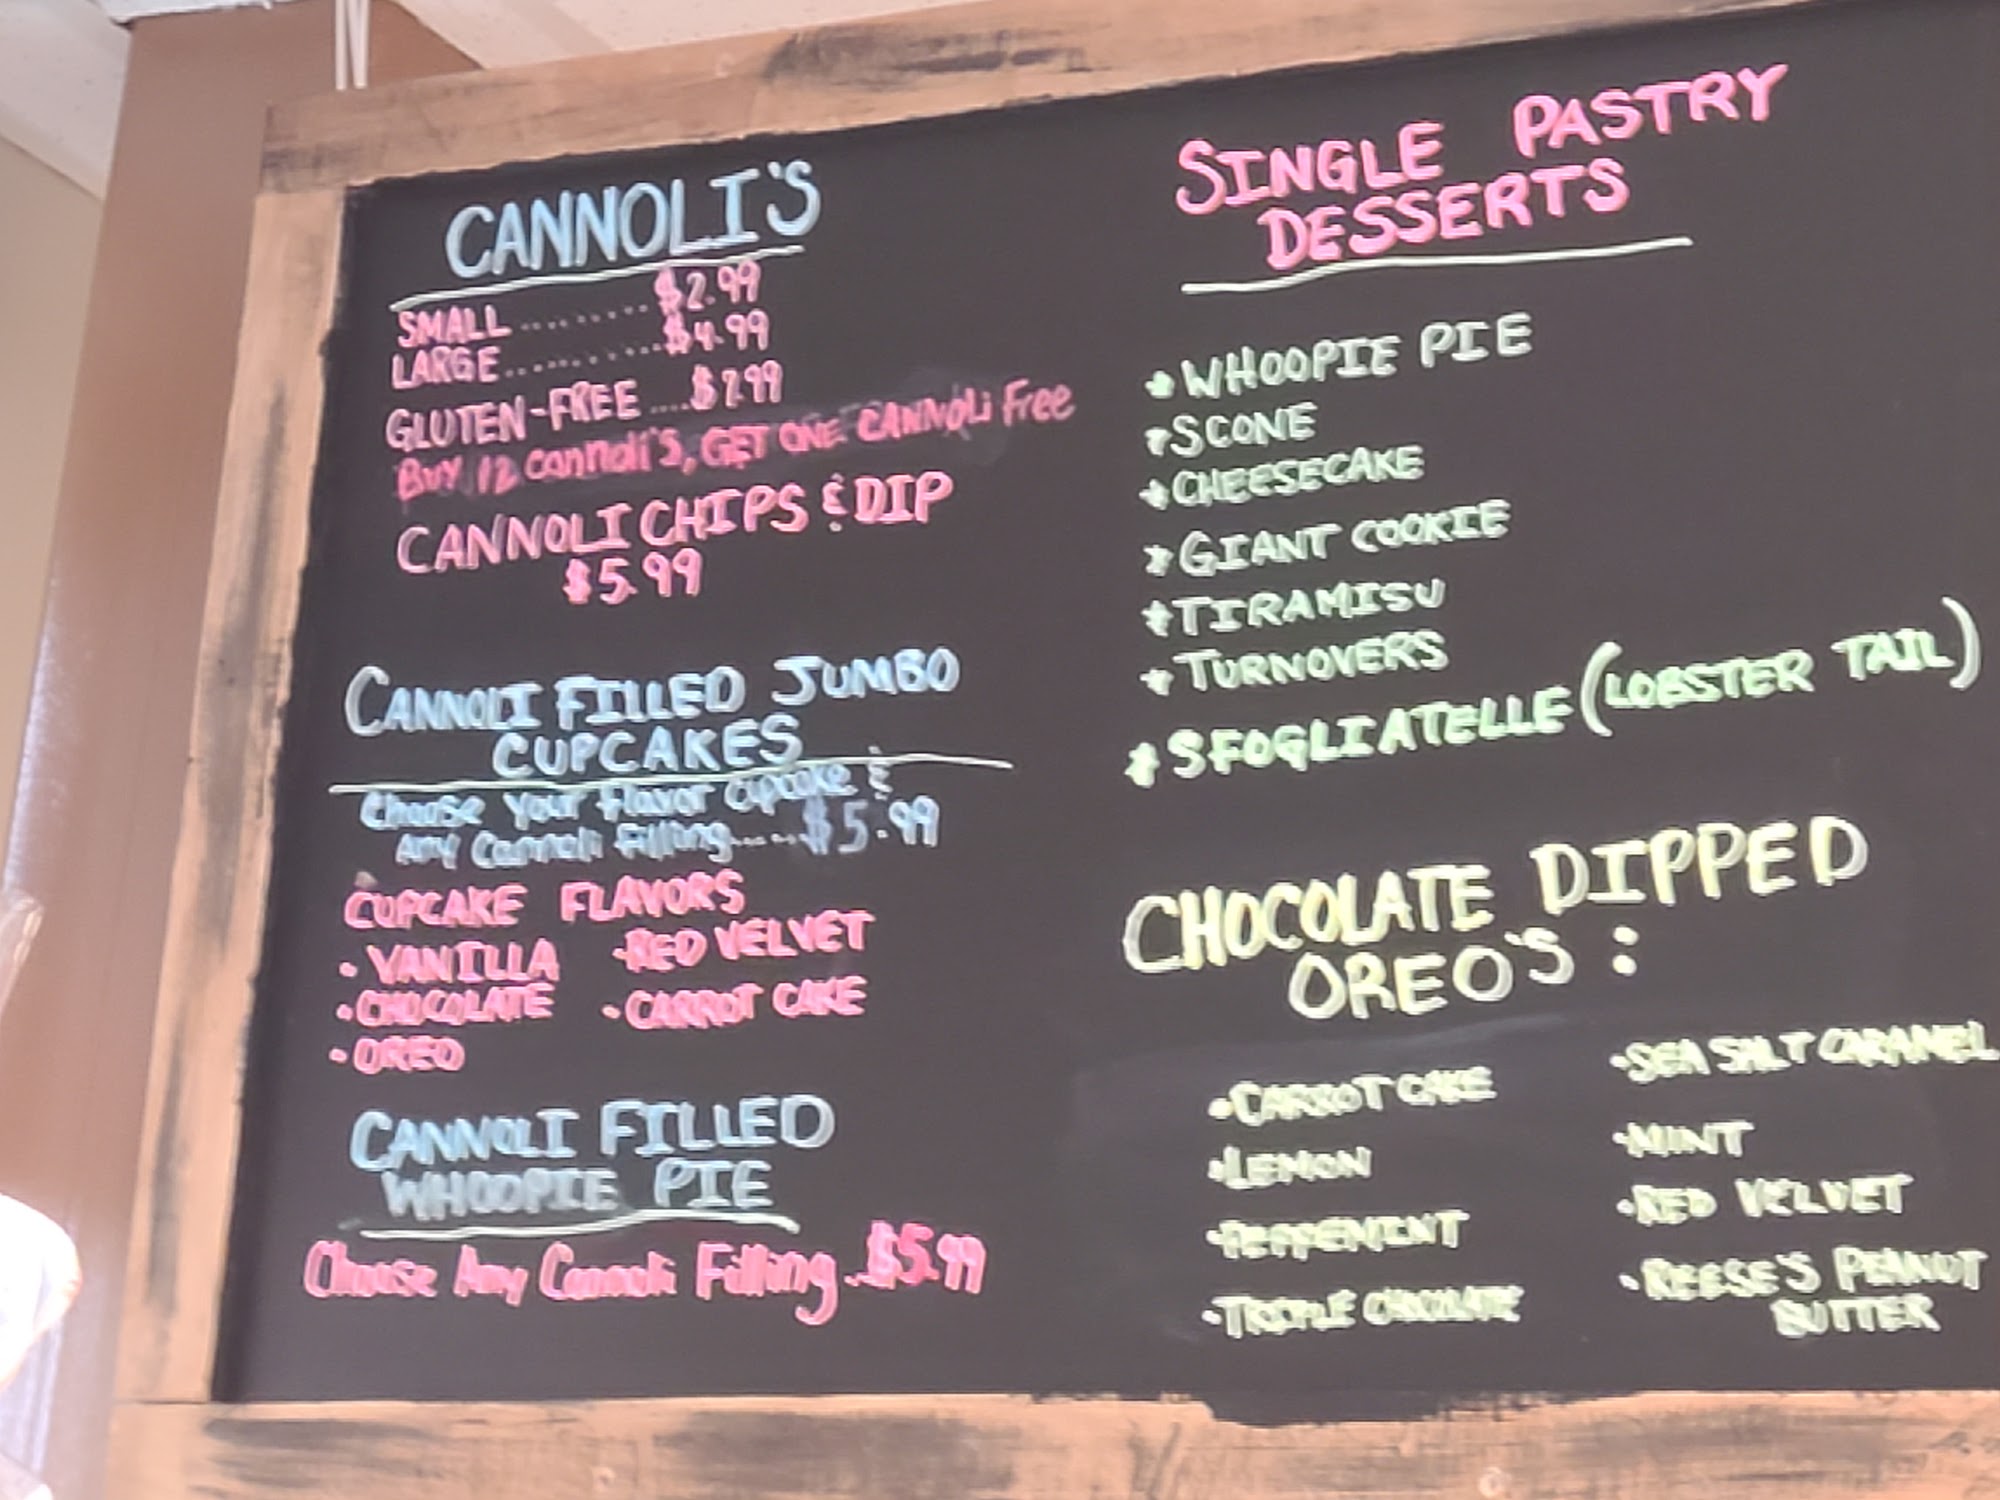 CANNOLI'S
SMALL ......... $2.99
LARGE .......... $4.99
GLUTEN-FREE .... $2.99
Buy 12 cannoli's, GET ONE CANNOLi Free
CANNOLI CHIPS & DIP
$5.99
CANNOLI FILLED JUMBO
CUPCAKES
Choose your flavor cupcake &
Any Cannoli filling...... $5.99
CUPCAKE FLAVORS
• VANILLA • RED VELVET
• CHOCOLATE • CARROT CAKE
• OREO
CANNOLI FILLED
WHOOPIE PIE
Choose Any Cannoli Filling..$5.99
SINGLE PASTRY
DESSERTS
* WHOOPIE PIE
* SCONE
* CHEESECAKE
* GIANT COOKIE
* TIRAMISU
* TURNOVERS
* SFOGLIATELLE (LOBSTER TAIL)
CHOCOLATE DIPPED
OREO'S :
• CARROT CAKE
• LEMON
• PEPPEMINT
• TRIPLE CHOCOLATE
• SEA SALT CARAMEL
• MINT
• RED VELVET
• REESE'S PEANUT
BUTTER